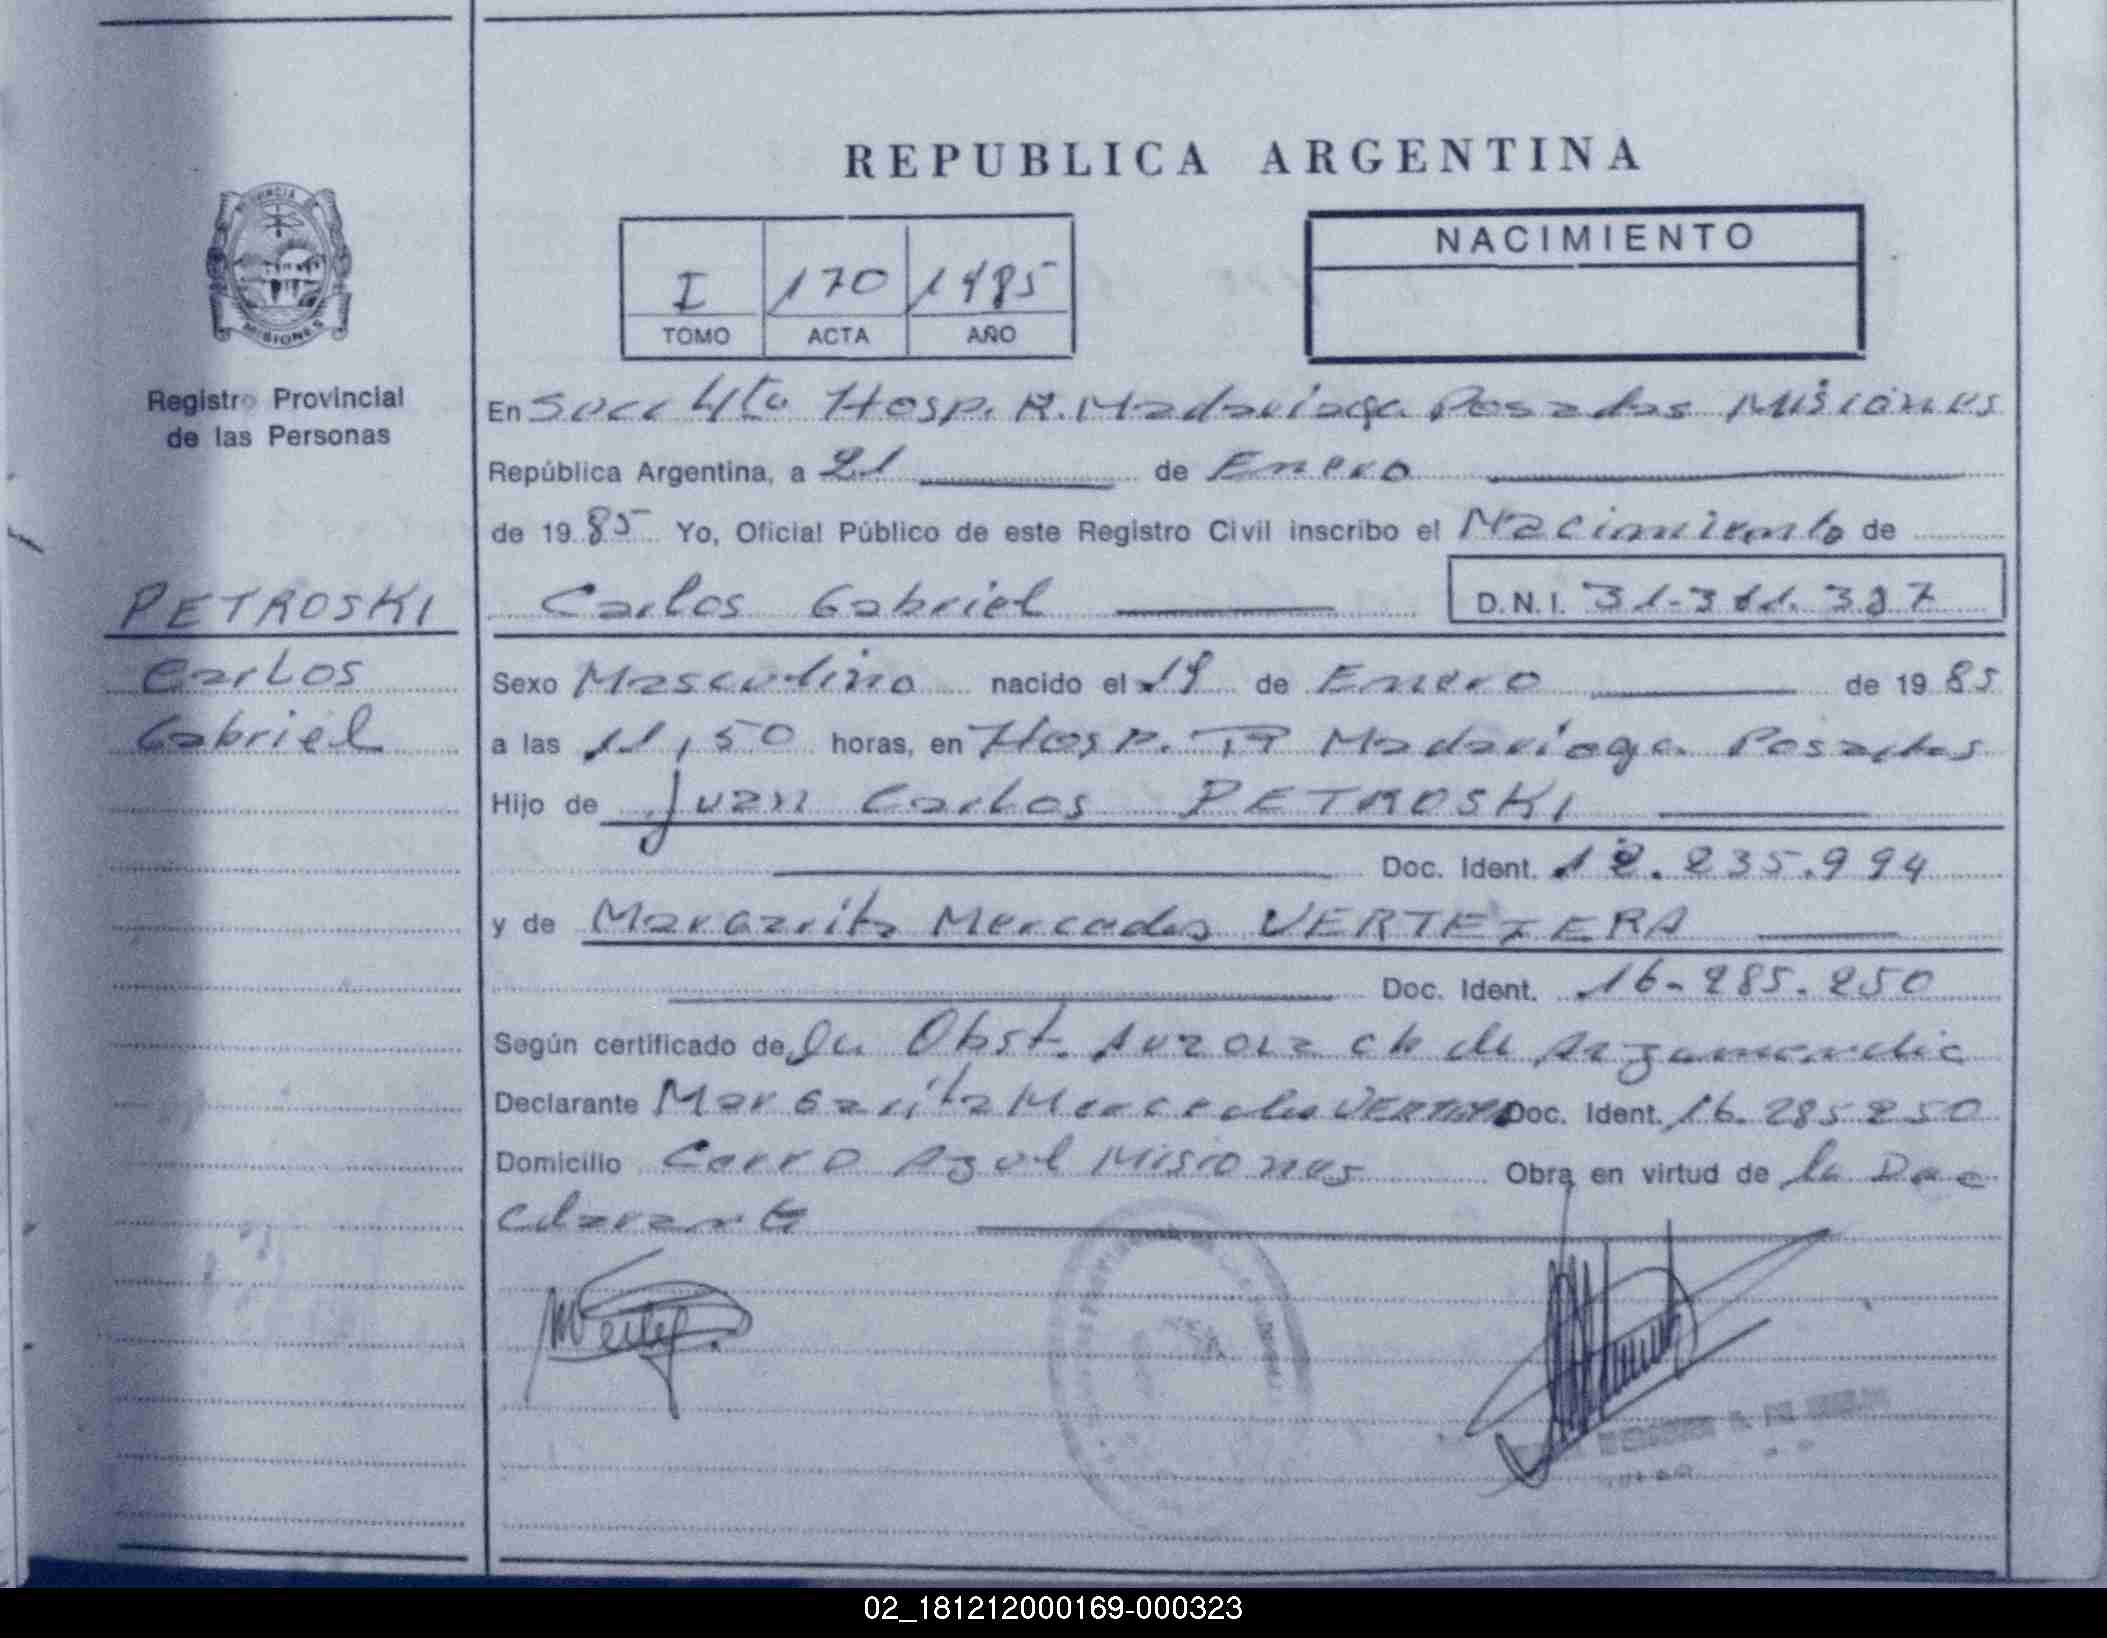 REPUBLICA ARGENTINA
PROVINCIA
MISIONES
Registro Provincial
de las Personas
I 170 1985
TOMO ACTA AÑO
NACIMIENTO
En Secc 4ta Hosp. R. Madariaga Posadas Misiones
República Argentina, a 21 de Enero
de 1985 Yo, Oficial Público de este Registro Civil inscribo el Nacimiento de
PETROSKI
Carlos
Gabriel
Carlos Gabriel D.N.I.
Sexo Masculino nacido el 19 de Enero de 1985
a las 11,50 horas, en Hosp. R Madariaga Posadas
Hijo de Juan Carlos PETROSKI
Doc. Ident. 12.235.994
y de Margarita Mercedes
Doc. Ident. 16-285.250
Según certificado de la Obst. Aurora de
Declarante Margarita Mercedes Doc. Ident. 16.285250
Domicilio Cerro Azul Misiones Obra en virtud de la Dec
clarante
02_181212000169-000323